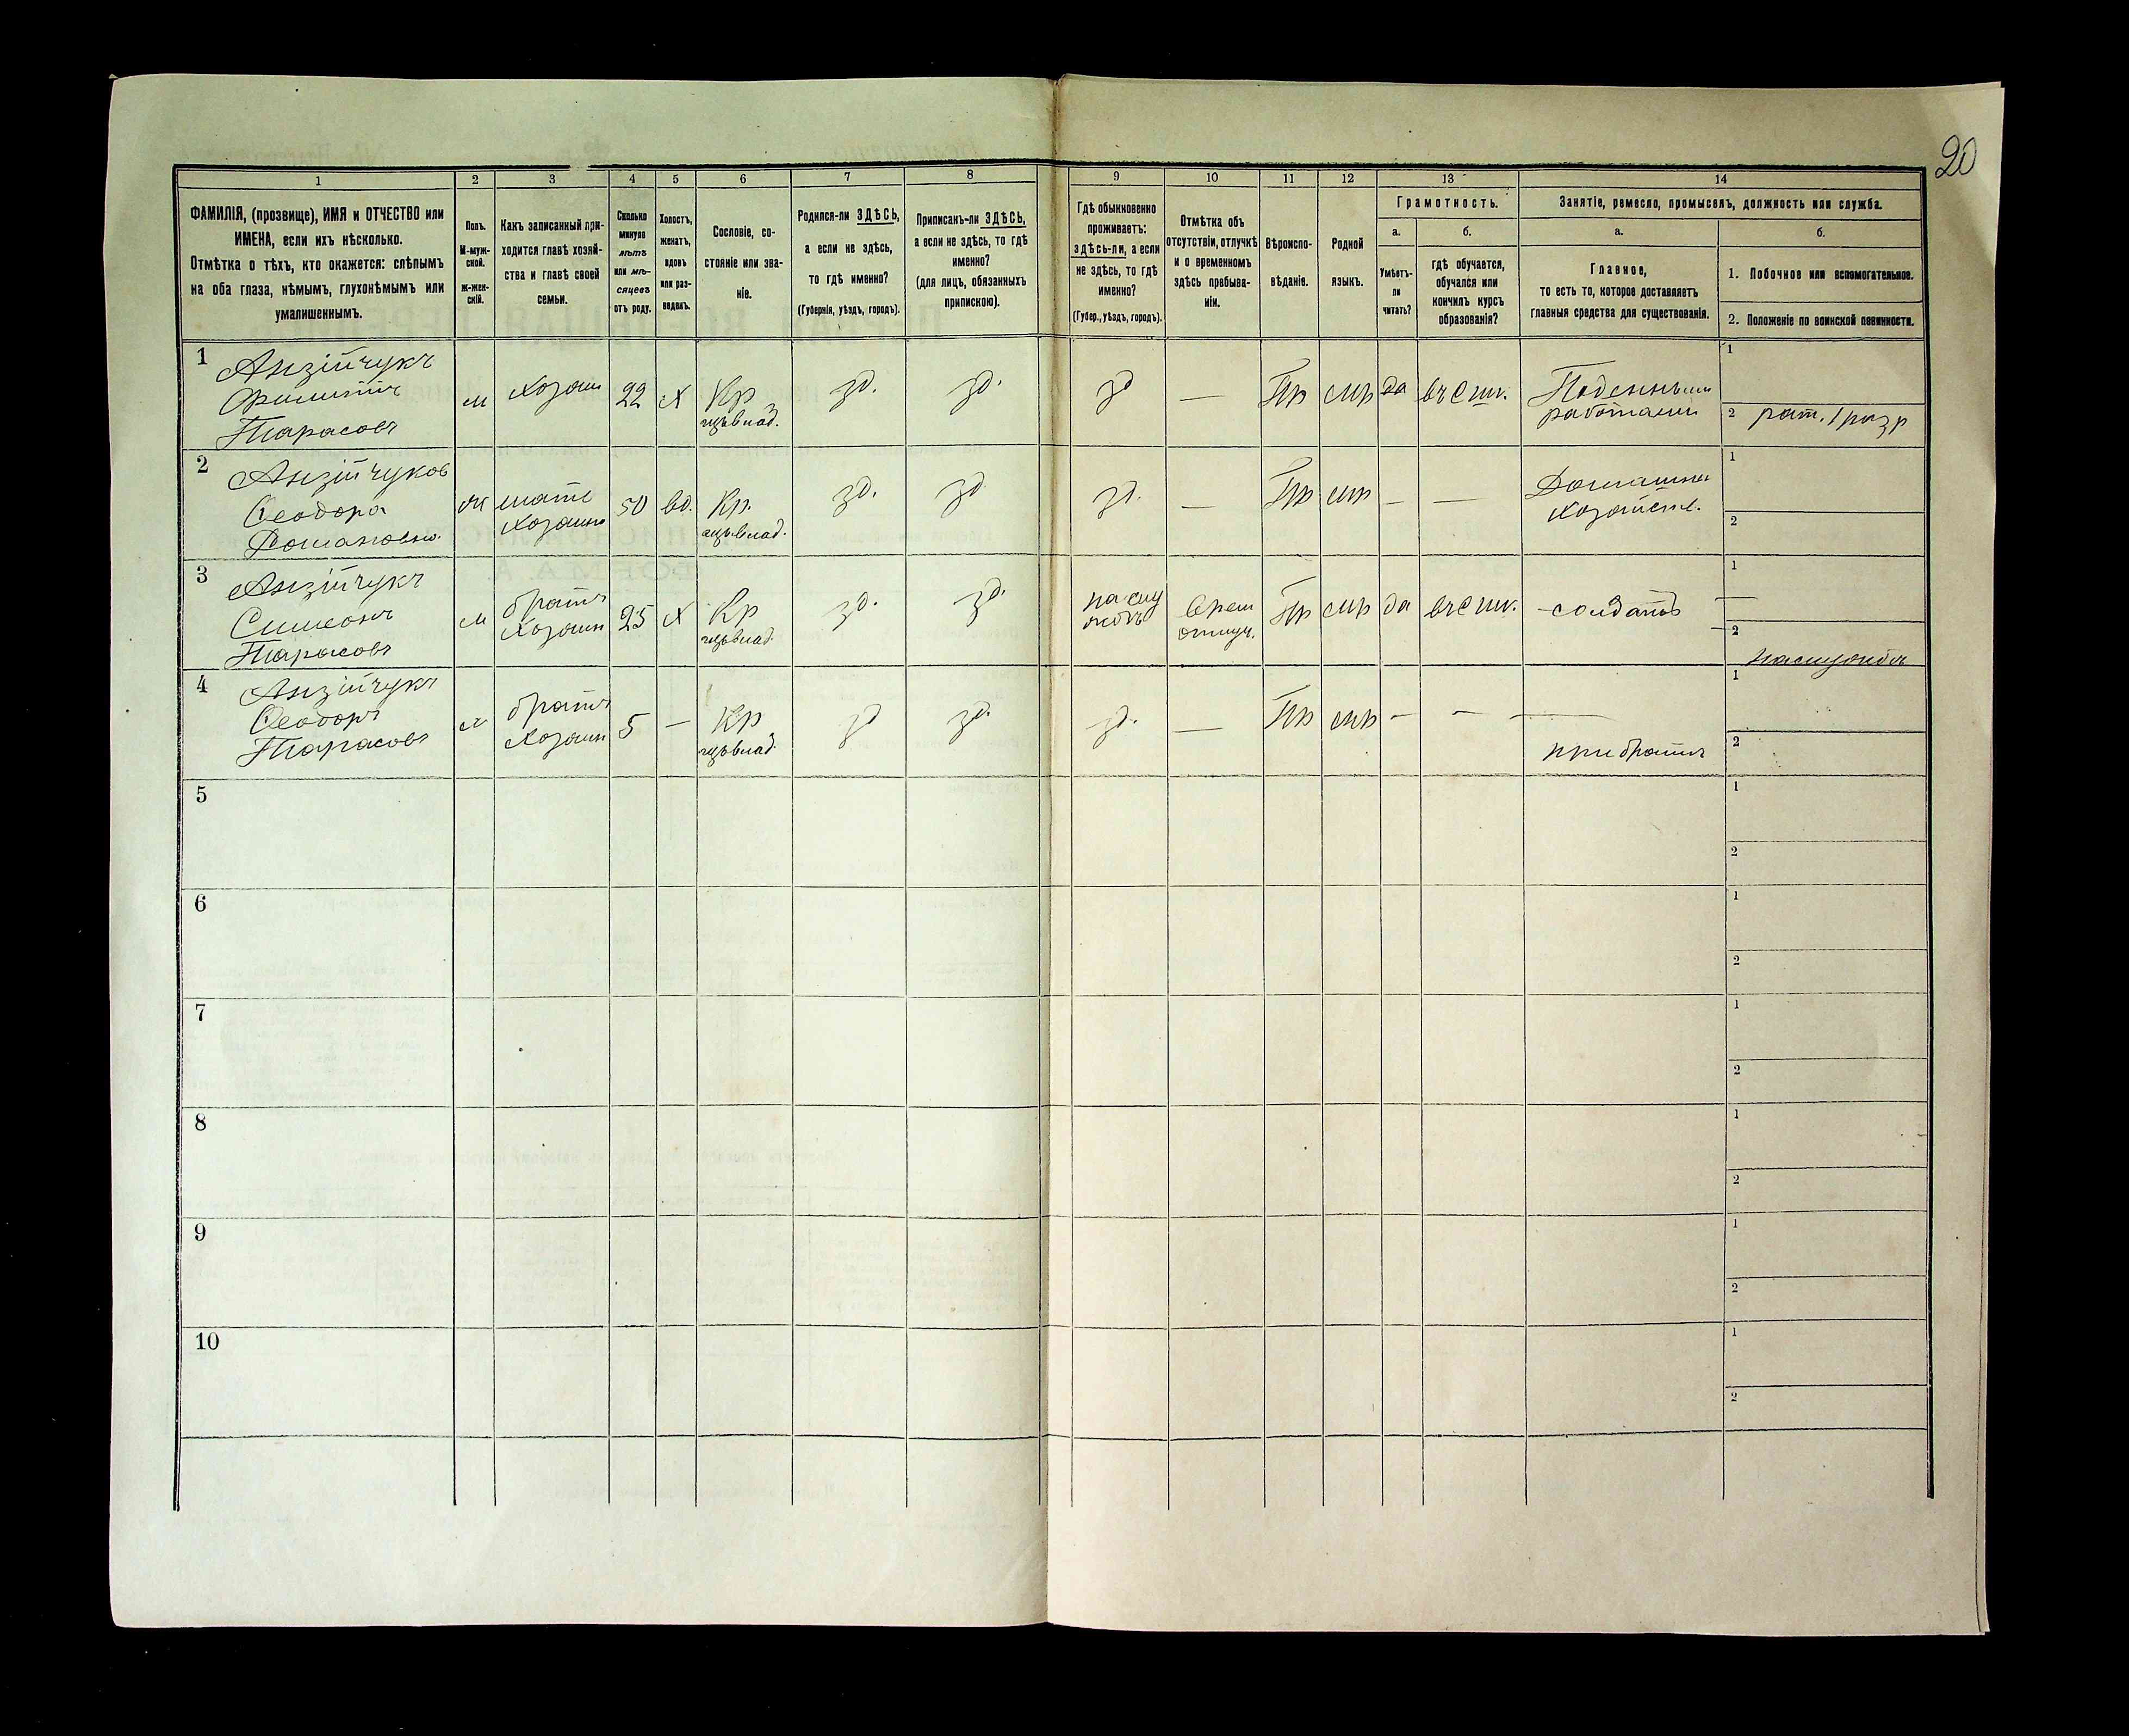 20
1 2 3 4 5 6 7 8 9 10 11 12 13 14
ФАМИЛІЯ, (прозвище), ИМЯ и ОТЧЕСТВО или
ИМЕНА, если ихъ нѣсколько.
Отмѣтка о тѣхъ, кто окажется: слѣпымъ
на оба глаза, нѣмымъ, глухонѣмымъ или
умалишеннымъ.
Полъ.
М-муж-
ской.
ж-жен-
скій.
Какъ записанный при-
ходится главѣ хозяй-
ства и главѣ своей
семьи.
Сколько
минуло
лѣтъ
или мѣ-
сяцевъ
отъ роду.
Холостъ,
женатъ,
вдовъ
или раз-
веденъ.
Сословіе, со-
стояніе или зва-
ніе.
Родился-ли ЗДѢСЬ,
а если не здѣсь,
то гдѣ именно?
(Губернія, уѣздъ, городъ).
Приписанъ-ли ЗДѢСЬ,
а если не здѣсь, то гдѣ
именно?
(для лицъ, обязанныхъ
припискою).
Гдѣ обыкновенно
проживаетъ:
здѣсь-ли, а если
не здѣсь, то гдѣ
именно?
(Губер., уѣздъ, городъ).
Отмѣтка объ
отсутствіи, отлучкѣ
и о временномъ
здѣсь пребыва-
ніи.
Вѣроиспо-
вѣданіе.
Родной
языкъ.
Грамотность.
а.
Умѣетъ-
ли
читать?
б.
гдѣ обучается,
обучался или
кончилъ курсъ
образованія?
Занятіе, ремесло, промыселъ, должность или служба.
а.
Главное,
то есть то, которое доставляетъ
главныя средства для существованія.
б.
1. Побочное или вспомогательное.
2. Положеніе по воинской повинности.
1
Анзійчукъ
Филиппъ
Тарасовъ
м
хозяин
22
х
Кр
зд.
зд.
зд
—
Пр
мр
да
въ с шк.
Поденным
работами
1
2 рат. 1 разр
2
Анзійчуков
Ѳеодора
Романовна.
ж
мать
хозяина
50
вд.
Кр.
зд.
зд
зд.
—
Пр
мр
—
—
Домашнее
хозяйств.
1
2
3
Анзійчукъ
Симеонъ
Тарасовъ
м
братъ
хозяин
25
х
Кр
зд.
зд.
на слу
жбѣ
врем
отлуч.
Пр
мр
да
въ с шк.
-солдатъ
1 —
2
на службѣ
4
Анзійчукъ
Ѳеодоръ
Тарасовъ
м
братъ
хозяин
5
—
Кр
зд
зд.
зд.
—
Пр
мр
—
—
—
при братѣ
1
2
5
1
2
6
1
2
7
1
2
8
1
2
9
1
2
10
1
2